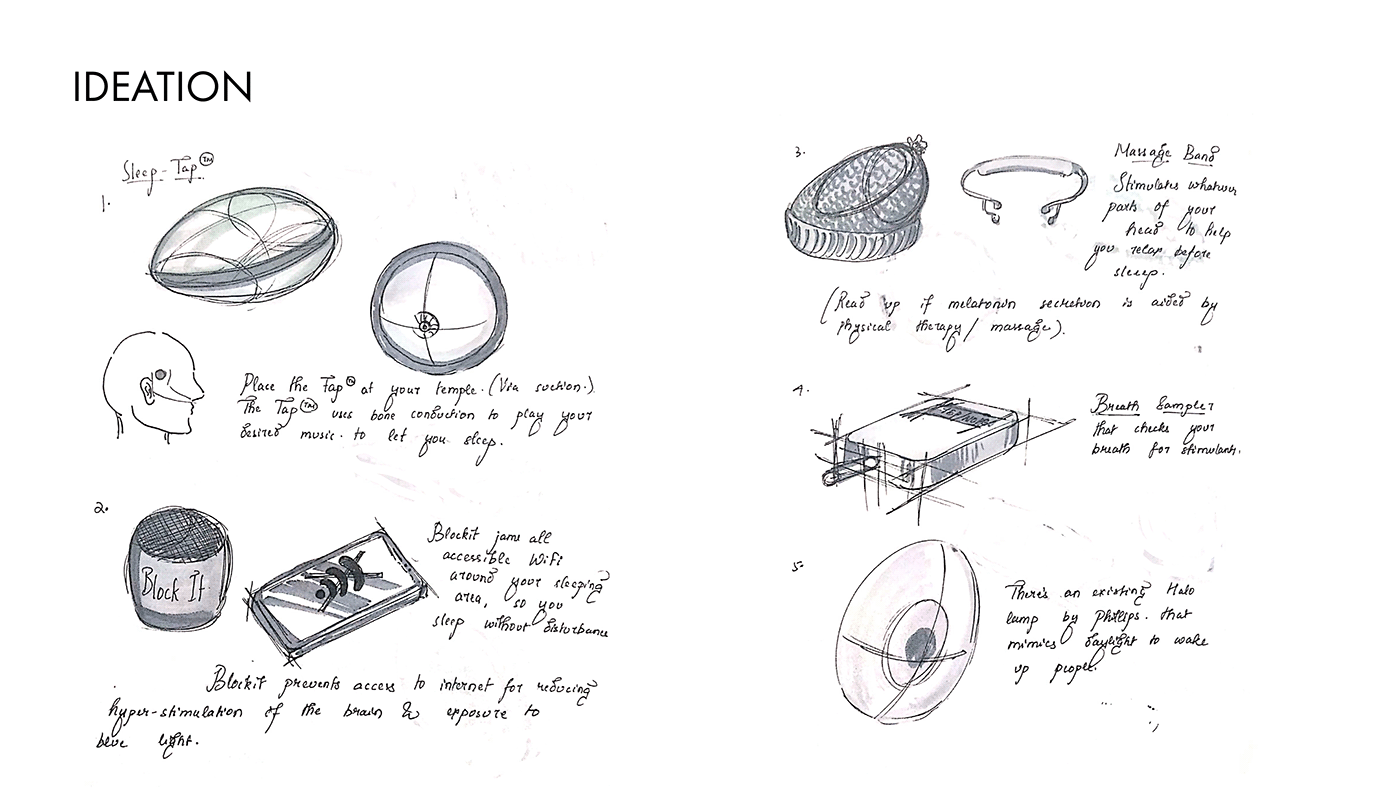 IDEATION
Sleep-Tap™
1.
Place the Tap™ at your temple. (Via suction.)
The Tap™ uses bone conduction to play your
desired music. to let you sleep.
2.
Block It
Blockit jams all
accessible WiFi
around your sleeping
area, so you
sleep without disturbance
Blockit prevents access to internet for reducing
hyper-stimulation of the brain & exposure to
blue light.
3.
Massage Band
Stimulates whatever
parts of your
head to help
you relax before
sleep.
(Read up if melatonin secretion is aided by
physical therapy/massage).
4.
Breath Sampler
that checks your
breath for stimulants.
5.
There's an existing Halo
lamp by Phillips. that
mimics daylight to wake
up people.